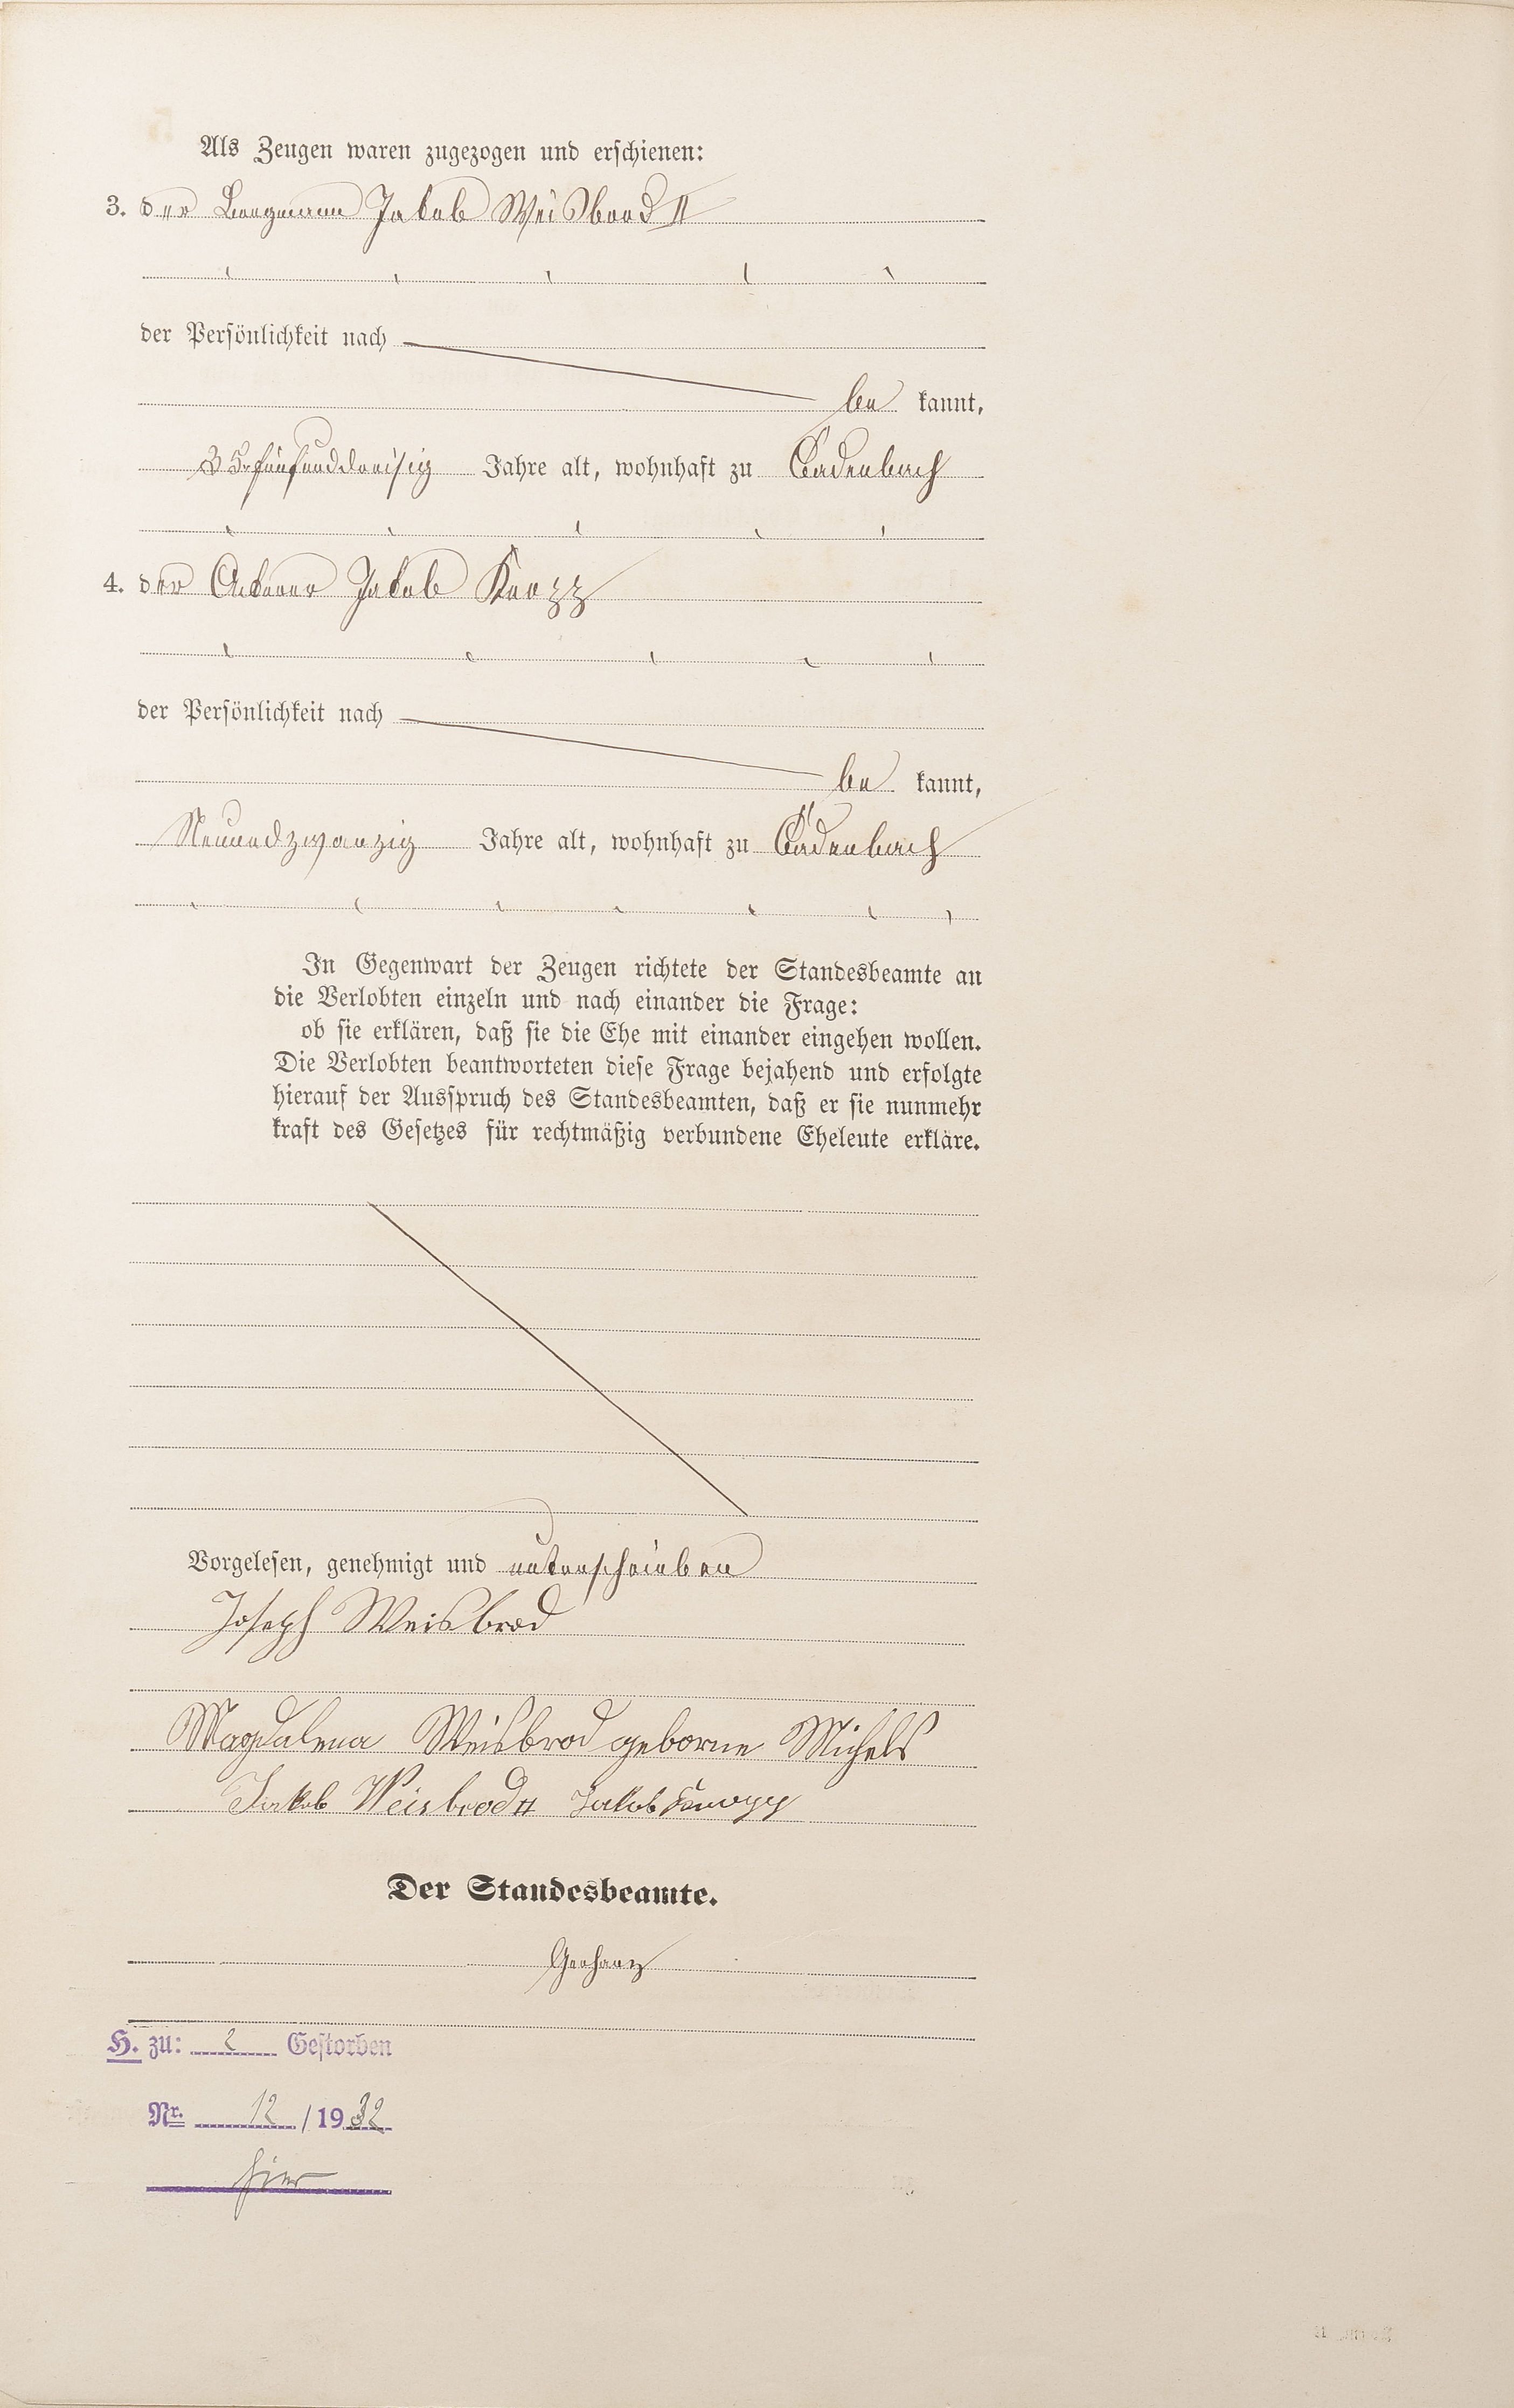 Als Zeugen waren zugezogen und erschienen:
3. der Bergmann Jakob Weisbrod II
der Persönlichkeit nach
be kannt,
35. fünfunddreisig Jahre alt, wohnhaft zu Cadenbach
4. der Ackerer Jakob
der Persönlichkeit nach
be kannt,
Neunundzwanzig Jahre alt, wohnhaft zu Cadenbach
In Gegenwart der Zeugen richtete der Standesbeamte an
die Verlobten einzeln und nach einander die Frage:
ob sie erklären, daß sie die Ehe mit einander eingehen wollen.
Die Verlobten beantworteten diese Frage bejahend und erfolgte
hierauf der Ausspruch des Standesbeamten, daß er sie nunmehr
kraft des Gesetzes für rechtmäßig verbundene Eheleute erkläre.
Vorgelesen, genehmigt und unterschrieben
Joseph Weisbrod
Magdalena Weisbrod geborne Michels
Jakob Weisbrod II Jakob
Der Standesbeamte.
Gerharz
H. zu: 2 Gestorben
Nr. 12 / 1932
hier